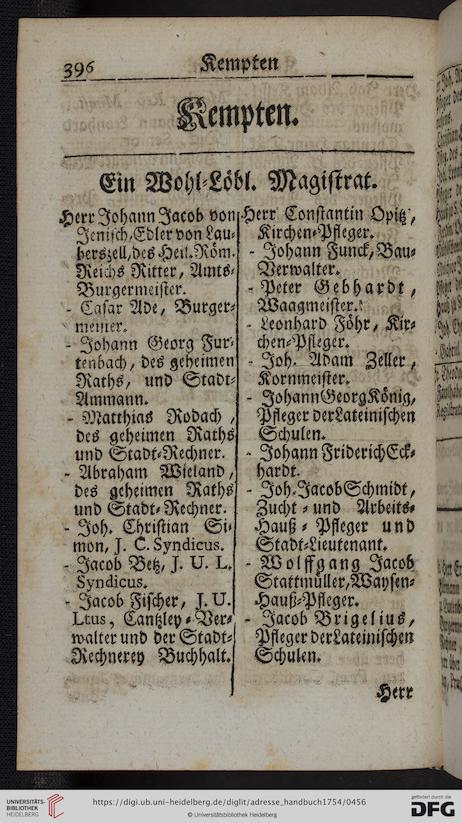 396
Kempten
Kempten.
Ein Wohl-Löbl. Magistrat.
Herr Johann Jacob von
Jenisch, Edler von Lau-
berszell, des Heil. Röm.
Reichs Ritter, Amts-
Burgermeister.
- Casar Ade, Burger-
meister.
- Johann Georg Fur-
tenbach, des geheimen
Raths, und Stadt-
Ammann.
- Matthias Rodach,
des geheimen Raths
und Stadt-Rechner.
- Abraham Wieland,
des geheimen Raths
und Stadt-Rechner.
- Joh. Christian Si-
mon, J. C. Syndicus.
- Jacob Betz, J. U. L.
Syndicus.
- Jacob Fischer, J. U.
Ltus, Cantzley-Ver-
walter und der Stadt-
Rechnerey Buchhalt.
Herr Constantin Opitz,
Kirchen-Pfleger.
- Johann Funck, Bau-
Verwalter.
- Peter Gebhardt,
Waagmeister.
- Leonhard Föhr, Kir-
chen-Pfleger.
- Joh. Adam Zeller,
Kornmeister.
- Johann Georg König,
Pfleger der Lateinischen
Schulen.
- Johann Friderich Eck-
hardt.
- Joh. Jacob Schmidt,
Zucht- und Arbeits-
Hauß-Pfleger und
Stadt-Lieutenant.
- Wolffgang Jacob
Stattmüller, Waysen-
Hauß-Pfleger.
- Jacob Brigelius,
Pfleger der Lateinischen
Schulen.
Herr
UNIVERSITÄTS-
BIBLIOTHEK
HEIDELBERG
https://digi.ub.uni-heidelberg.de/diglit/adresse_handbuch1754/0456
© Universitätsbibliothek Heidelberg
gefördert durch die
DFG